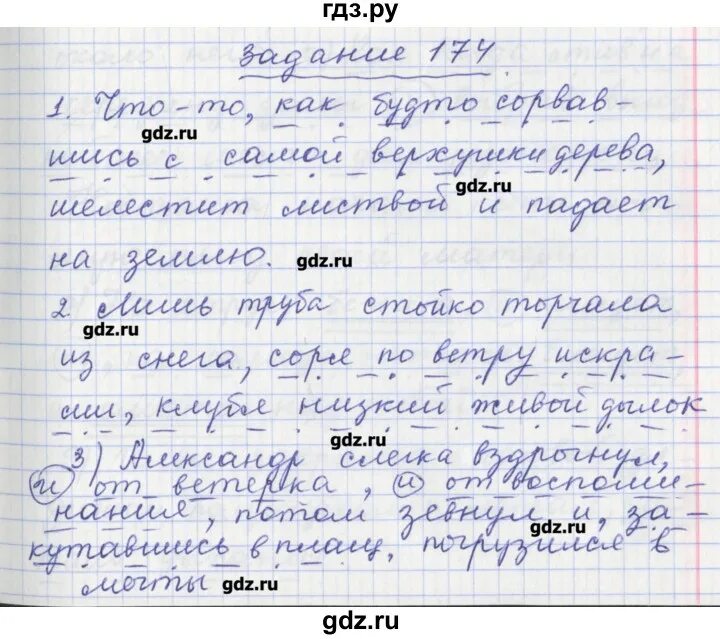 гдз.ру
задание 174
1. Что-то, как будто сорвав-
gdz.ru
шись с самой верхушки дерева,
gdz.ru
шелестит листвой и падает
на землю. gdz.ru
2. Лишь труба стойко торчала
gdz.ru
из снега, соря по ветру искра-
gdz.ru
ми, клубя низкий живой дымок
gdz.ru
3) Александр слегка вздрогнул,
и от ветерка, и от воспоми-
нания, потом зевнул и, за-
gdz.ru
кутавшись в плащ, погрузился в
мечты gdz.ru
gdz.ru